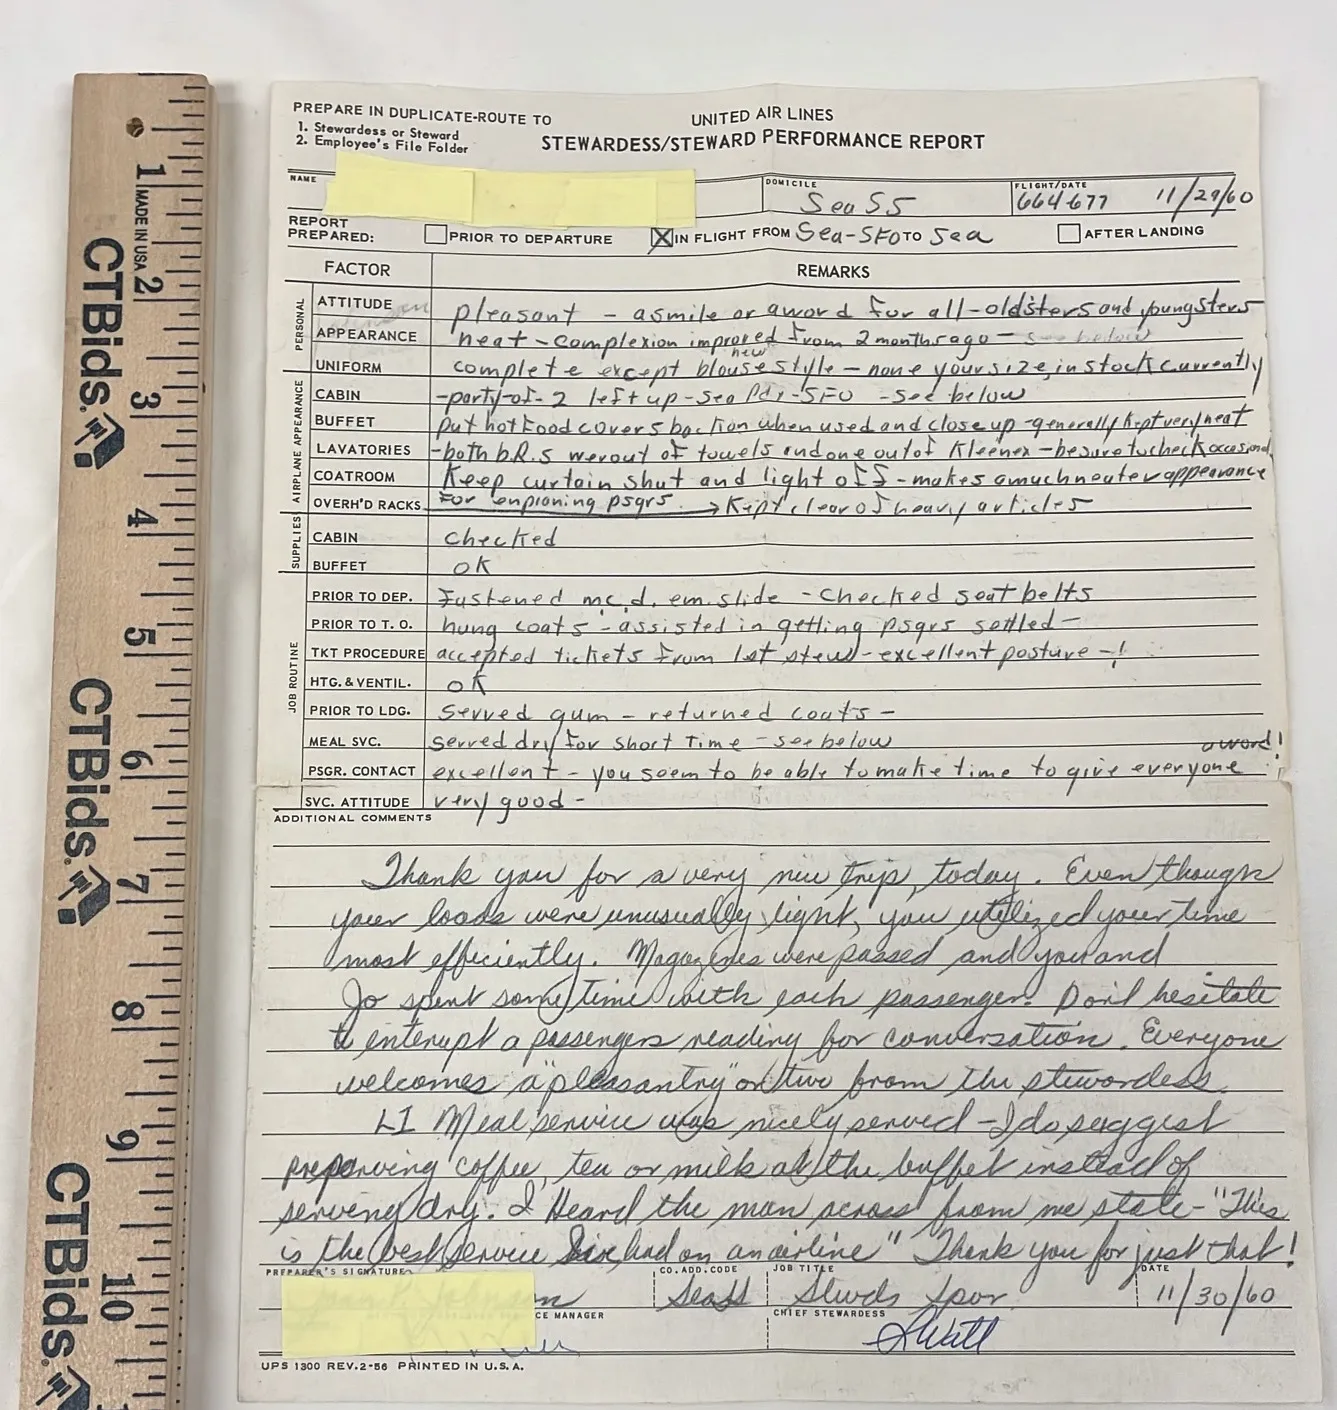 PREPARE IN DUPLICATE-ROUTE TO
1. Stewardess or Steward
2. Employee's File Folder
UNITED AIR LINES
STEWARDESS/STEWARD PERFORMANCE REPORT
NAME
DOMICILE Sea SS
FLIGHT/DATE 664 677 11/29/60
REPORT PREPARED: PRIOR TO DEPARTURE X IN FLIGHT FROM Sea-SFO TO Sea AFTER LANDING
FACTOR REMARKS
PERSONAL
ATTITUDE pleasant - a smile or a word for all - oldsters and youngsters
APPEARANCE neat - complexion improved from 2 months ago - see below
new
UNIFORM complete except blouse style - none your size, in stock currently
AIRPLANE APPEARANCE
CABIN -party-of-2 left up - Sea Pdx-SFO - see below
BUFFET put hot food covers back on when used and close up - generally kept very neat
LAVATORIES -both b.R.s were out of towels and one out of Kleenex - be sure to check occasional
COATROOM Keep curtain shut and light off - makes a much neater appearance
OVERH'D RACKS for enplaning psgrs → Kept clear of heavy articles
SUPPLIES
CABIN checked
BUFFET OK
JOB ROUTINE
PRIOR TO DEP. Fastened m.c.d. em. slide - checked seat belts
PRIOR TO T. O. hung coats - assisted in getting psgrs settled -
TKT PROCEDURE accepted tickets from 1st stew - excellent posture - !
HTG. & VENTIL. OK
PRIOR TO LDG. served gum - returned coats -
MEAL SVC. served dry for short time - see below
a word!
PSGR. CONTACT excellent - you seem to be able to make time to give everyone
SVC. ATTITUDE very good -
ADDITIONAL COMMENTS
Thank you for a very nice trip, today. Even though
your loads were unusually light, you utilized your time
most efficiently. Magazines were passed and you and
Jo spent some time with each passenger. Don't hesitate
to interupt a passengers reading for conversation. Everyone
welcomes a "pleasantry" or two from the stewardess.
LI Meal service was nicely served - I do suggest
preparing coffee, tea or milk at the buffet instead of
serving dry. I heard the man across from me state - "This
is the best service I've had on an airline" Thank you for just that!
PREPARER'S SIGNATURE
CO. ADD. CODE Seass
JOB TITLE Stwds Spvr
DATE 11/30/60
CE MANAGER
CHIEF STEWARDESS
UPS 1300 REV. 2-56 PRINTED IN U.S.A.
1 MADE IN USA 2 3 4 5 6 7 8 9 10
CTBids
CTBids
CTBids